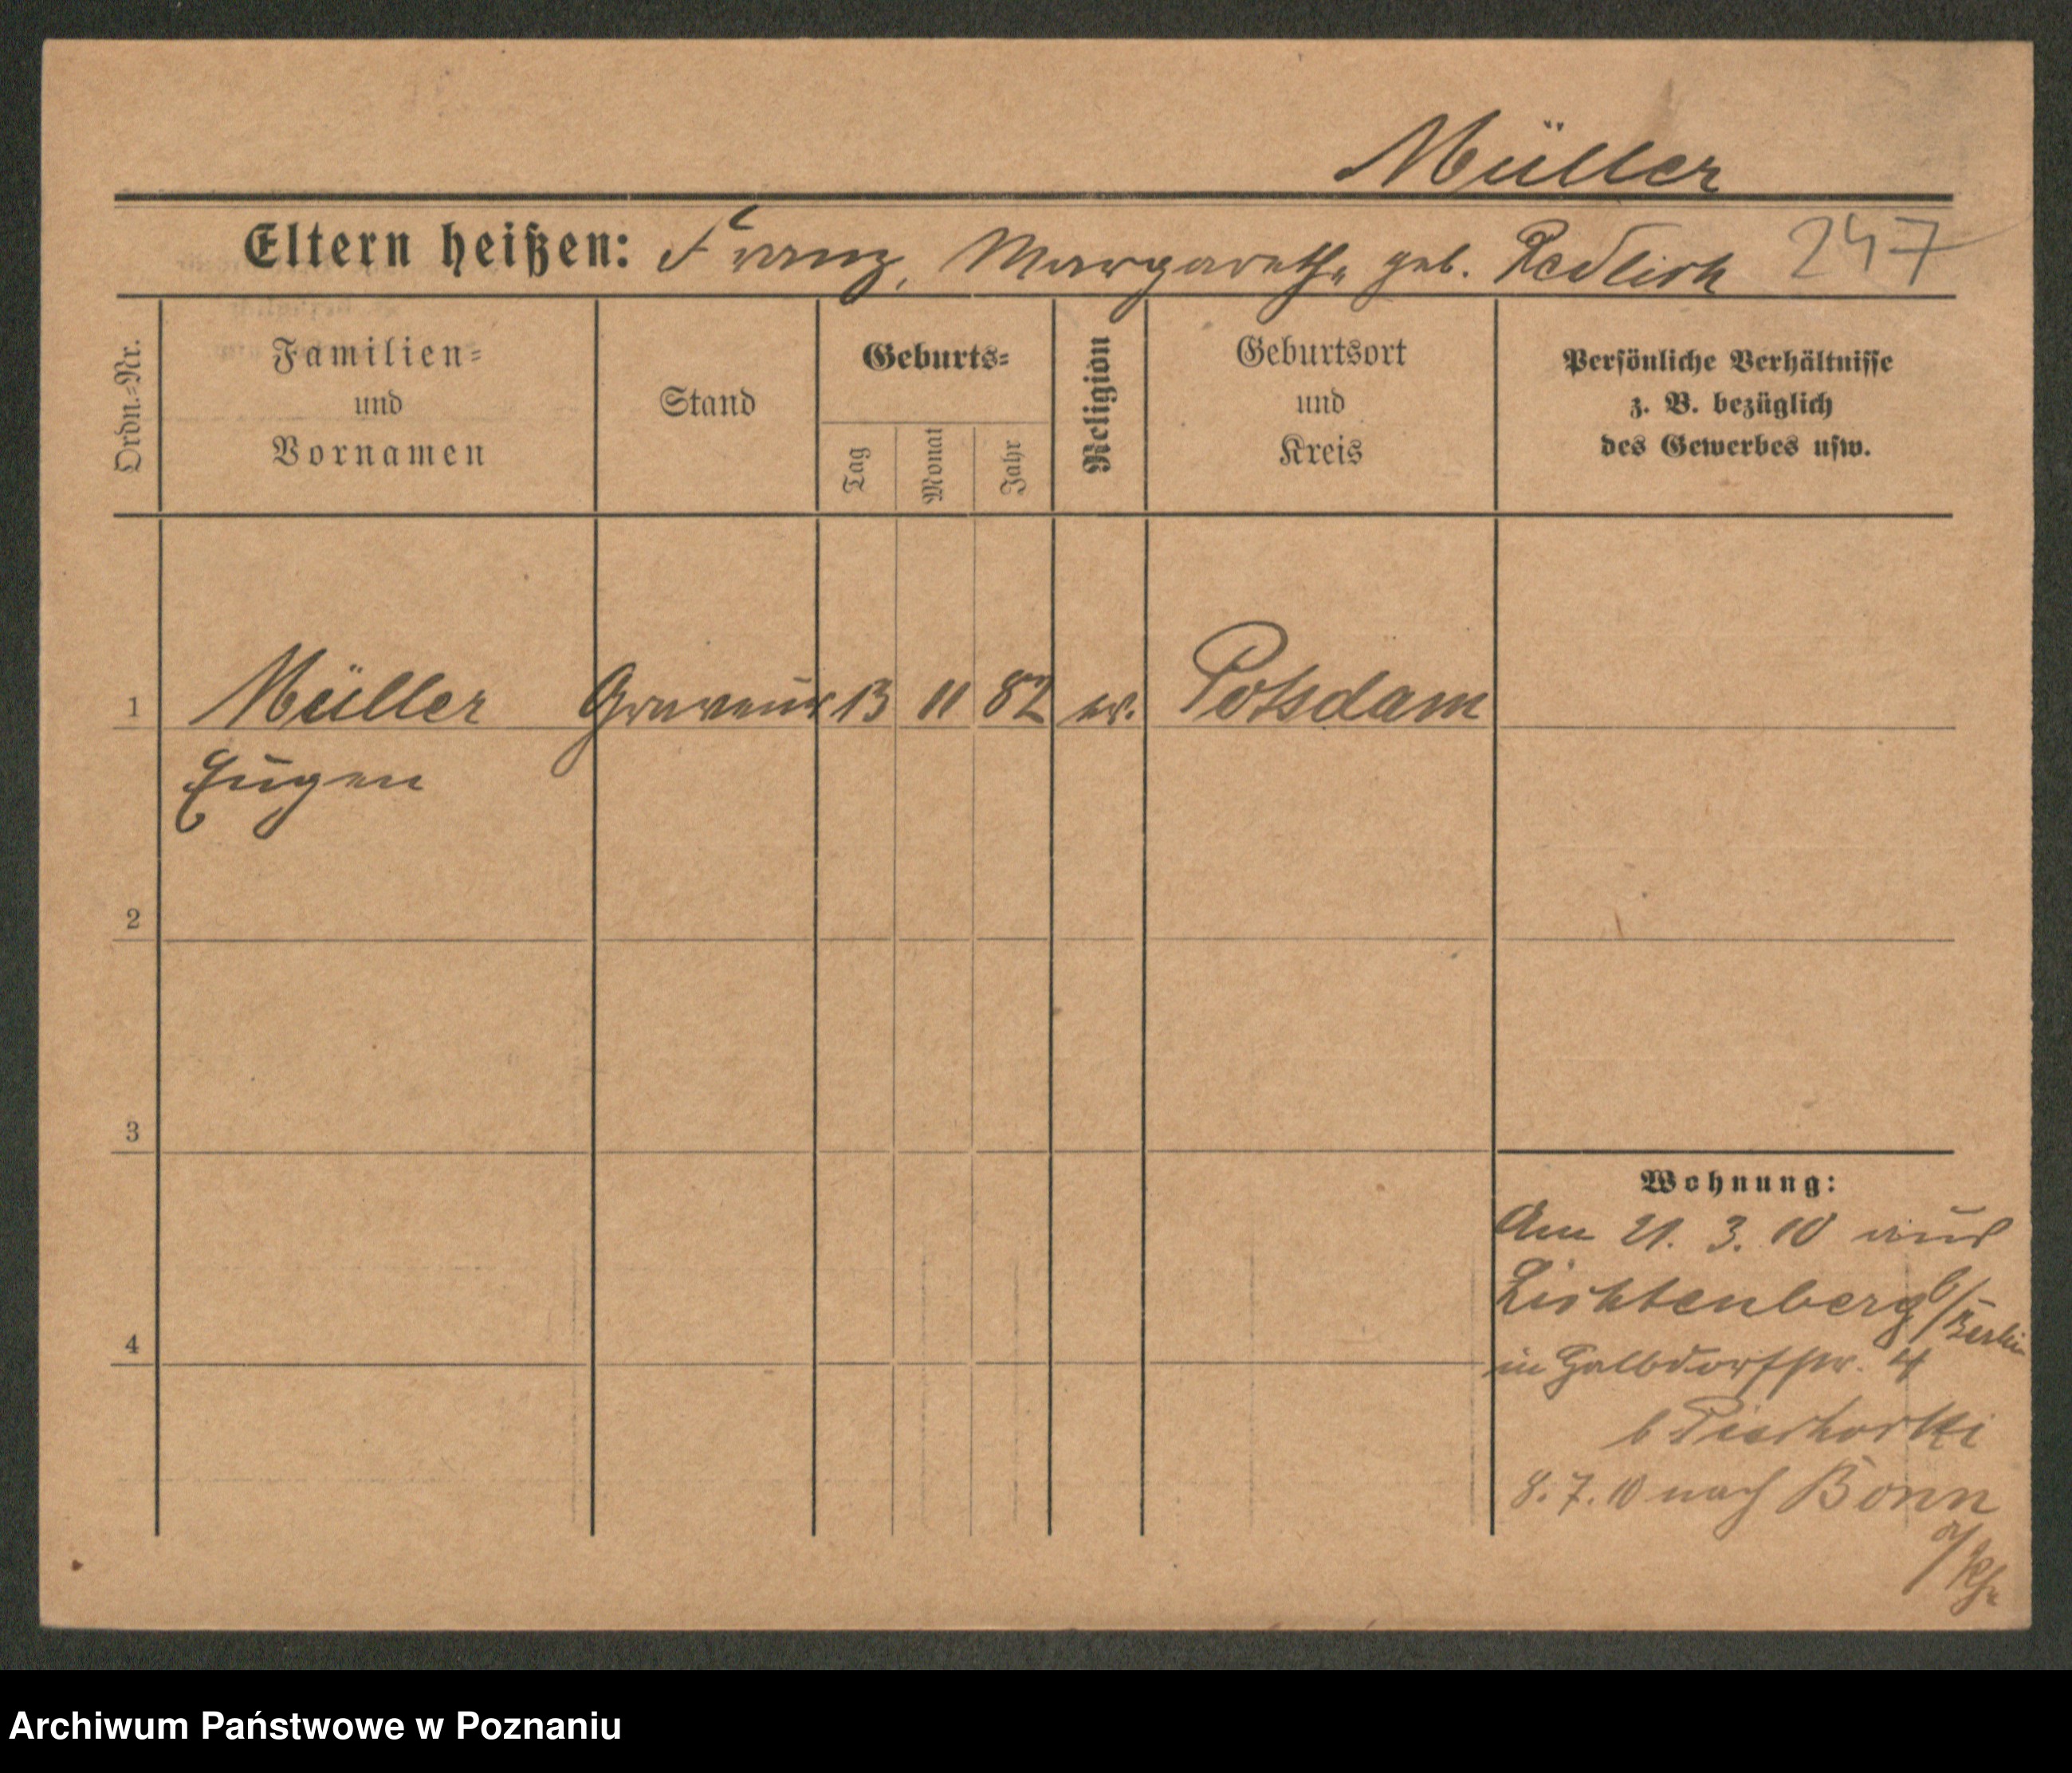 Müller
Eltern heißen: Franz, Margarethe geb. Redlich 247
Ordn.=Nr.
Familien=
und
Vornamen
Stand
Geburts=
Tag
Monat
Jahr
Religion
Geburtsort
und
Kreis
Persönliche Verhältnisse
z. B. bezüglich
des Gewerbes usw.
1 Müller Graveur 13 11 82 ev. Potsdam
Eugen
2
3
4
Wohnung:
Am 21. 3. 10 aus
Lichtenberg b/Berlin
in 4
b
8. 7. 10 nach Bonn
a/Rh.
Archiwum Państwowe w Poznaniu